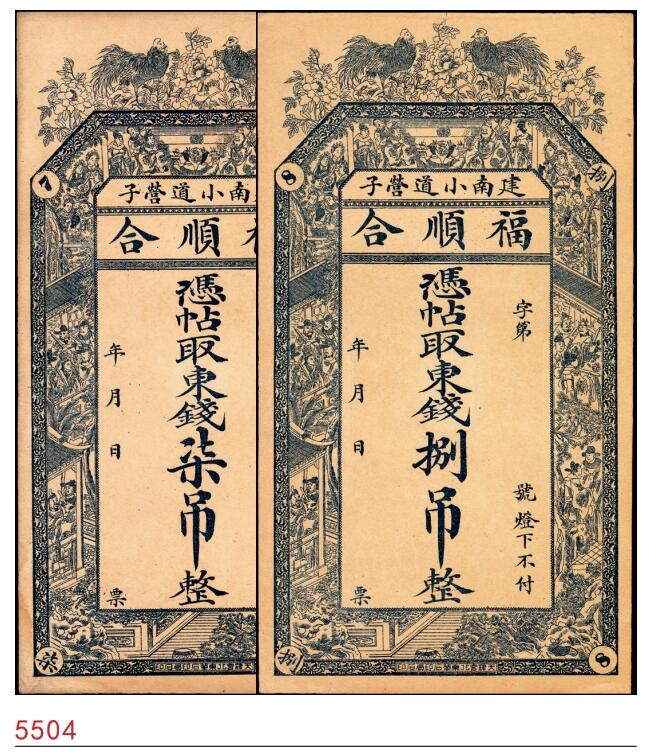 7
南小道營子
順合
憑帖取東錢柒吊整
年月日
票
柒
8
捌
建南小道營子
福順合
字第
號燈下不付
憑帖取東錢捌吊整
年月日
票
捌
8
5504